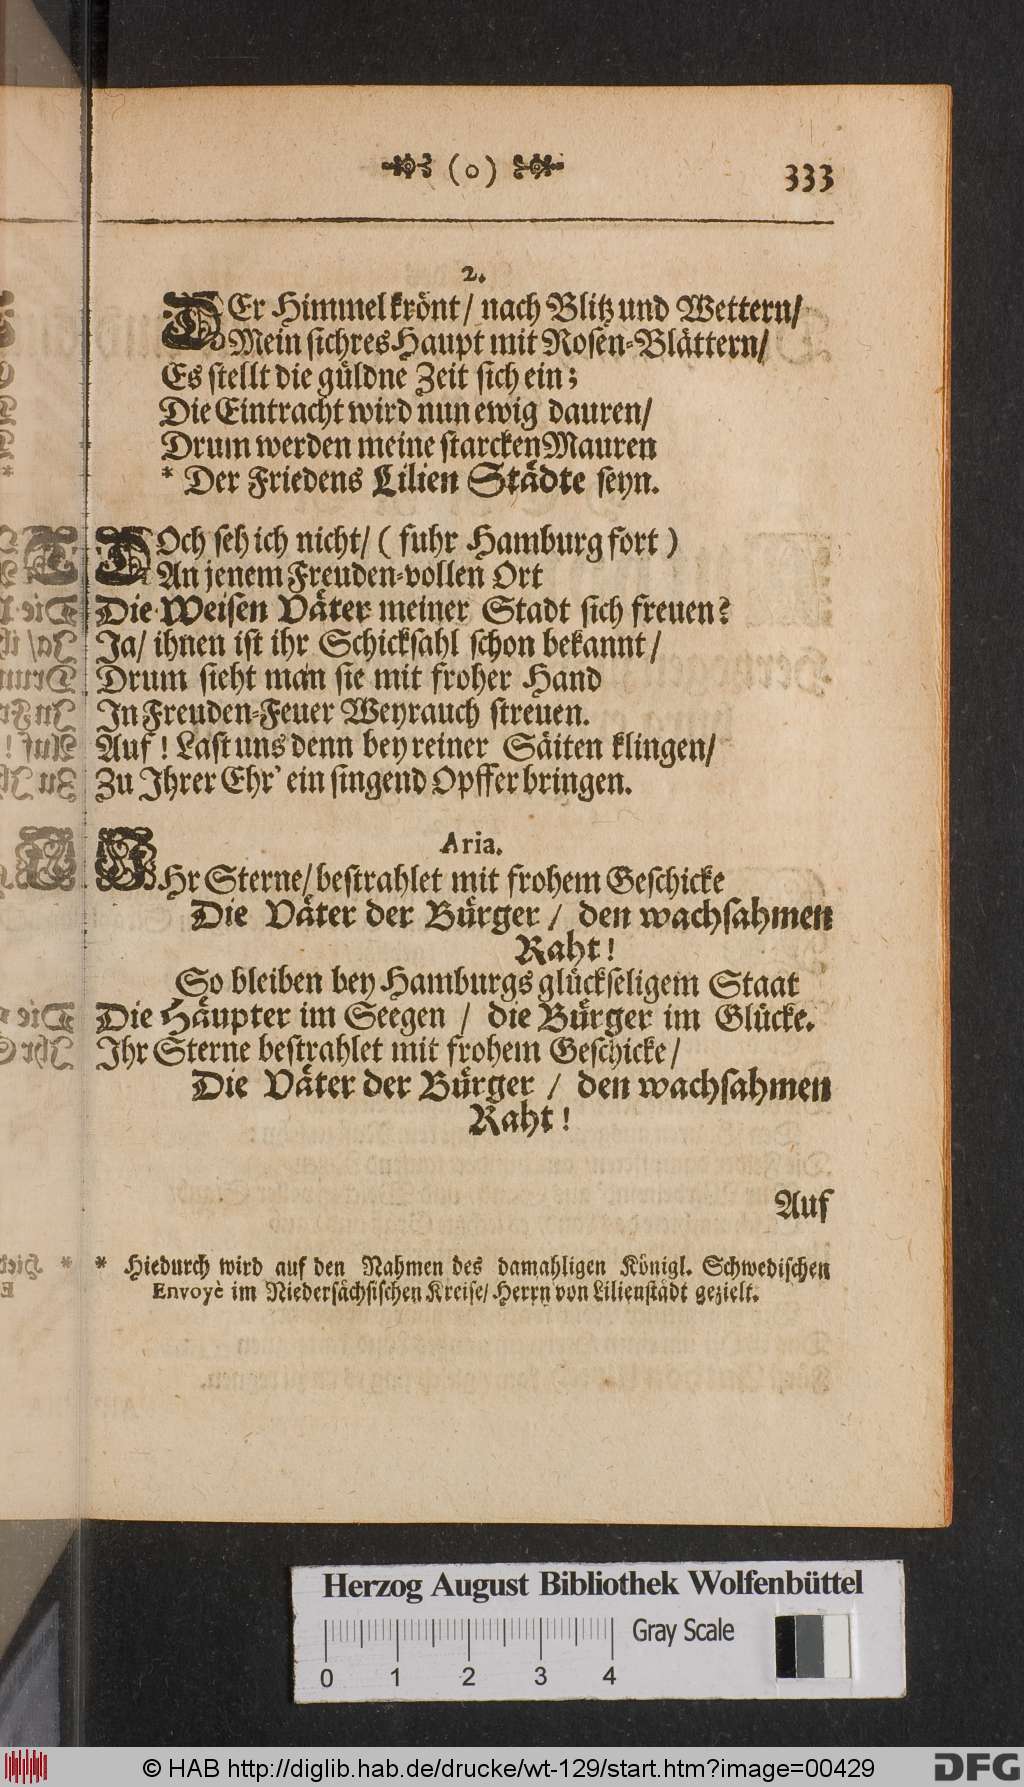 (o) 333
2.
DEr Himmel krönt/ nach Blitz und Wettern/
Mein sichres Haupt mit Rosen-Blättern/
Es stellt die güldne Zeit sich ein;
Die Eintracht wird nun ewig dauren/
Drum werden meine starcken Mauren
* Der Friedens Lilien Städte seyn.
DOch seh ich nicht/ ( fuhr Hamburg fort )
An jenem Freuden-vollen Ort
Die Weisen Väter meiner Stadt sich freuen?
Ja/ ihnen ist ihr Schicksahl schon bekannt/
Drum sieht man sie mit froher Hand
In Freuden-Feuer Weyrauch streuen.
Auf! Last uns denn bey reiner Säiten klingen/
Zu Ihrer Ehr' ein singend Opffer bringen.
Aria.
IHr Sterne/ bestrahlet mit frohem Geschicke
Die Väter der Bürger / den wachsahmen
Raht!
So bleiben bey Hamburgs glückseligem Staat
Die Häupter im Seegen / die Bürger im Glücke.
Ihr Sterne bestrahlet mit frohem Geschicke/
Die Väter der Bürger / den wachsahmen
Raht!
Auf
* Hiedurch wird auf den Nahmen des damahligen Königl. Schwedischen
Envoyè im Niedersächsischen Kreise/ Herrn von Lilienstädt gezielt.
Herzog August Bibliothek Wolfenbüttel
Gray Scale
0 1 2 3 4
© HAB http://diglib.hab.de/drucke/wt-129/start.htm?image=00429
DFG